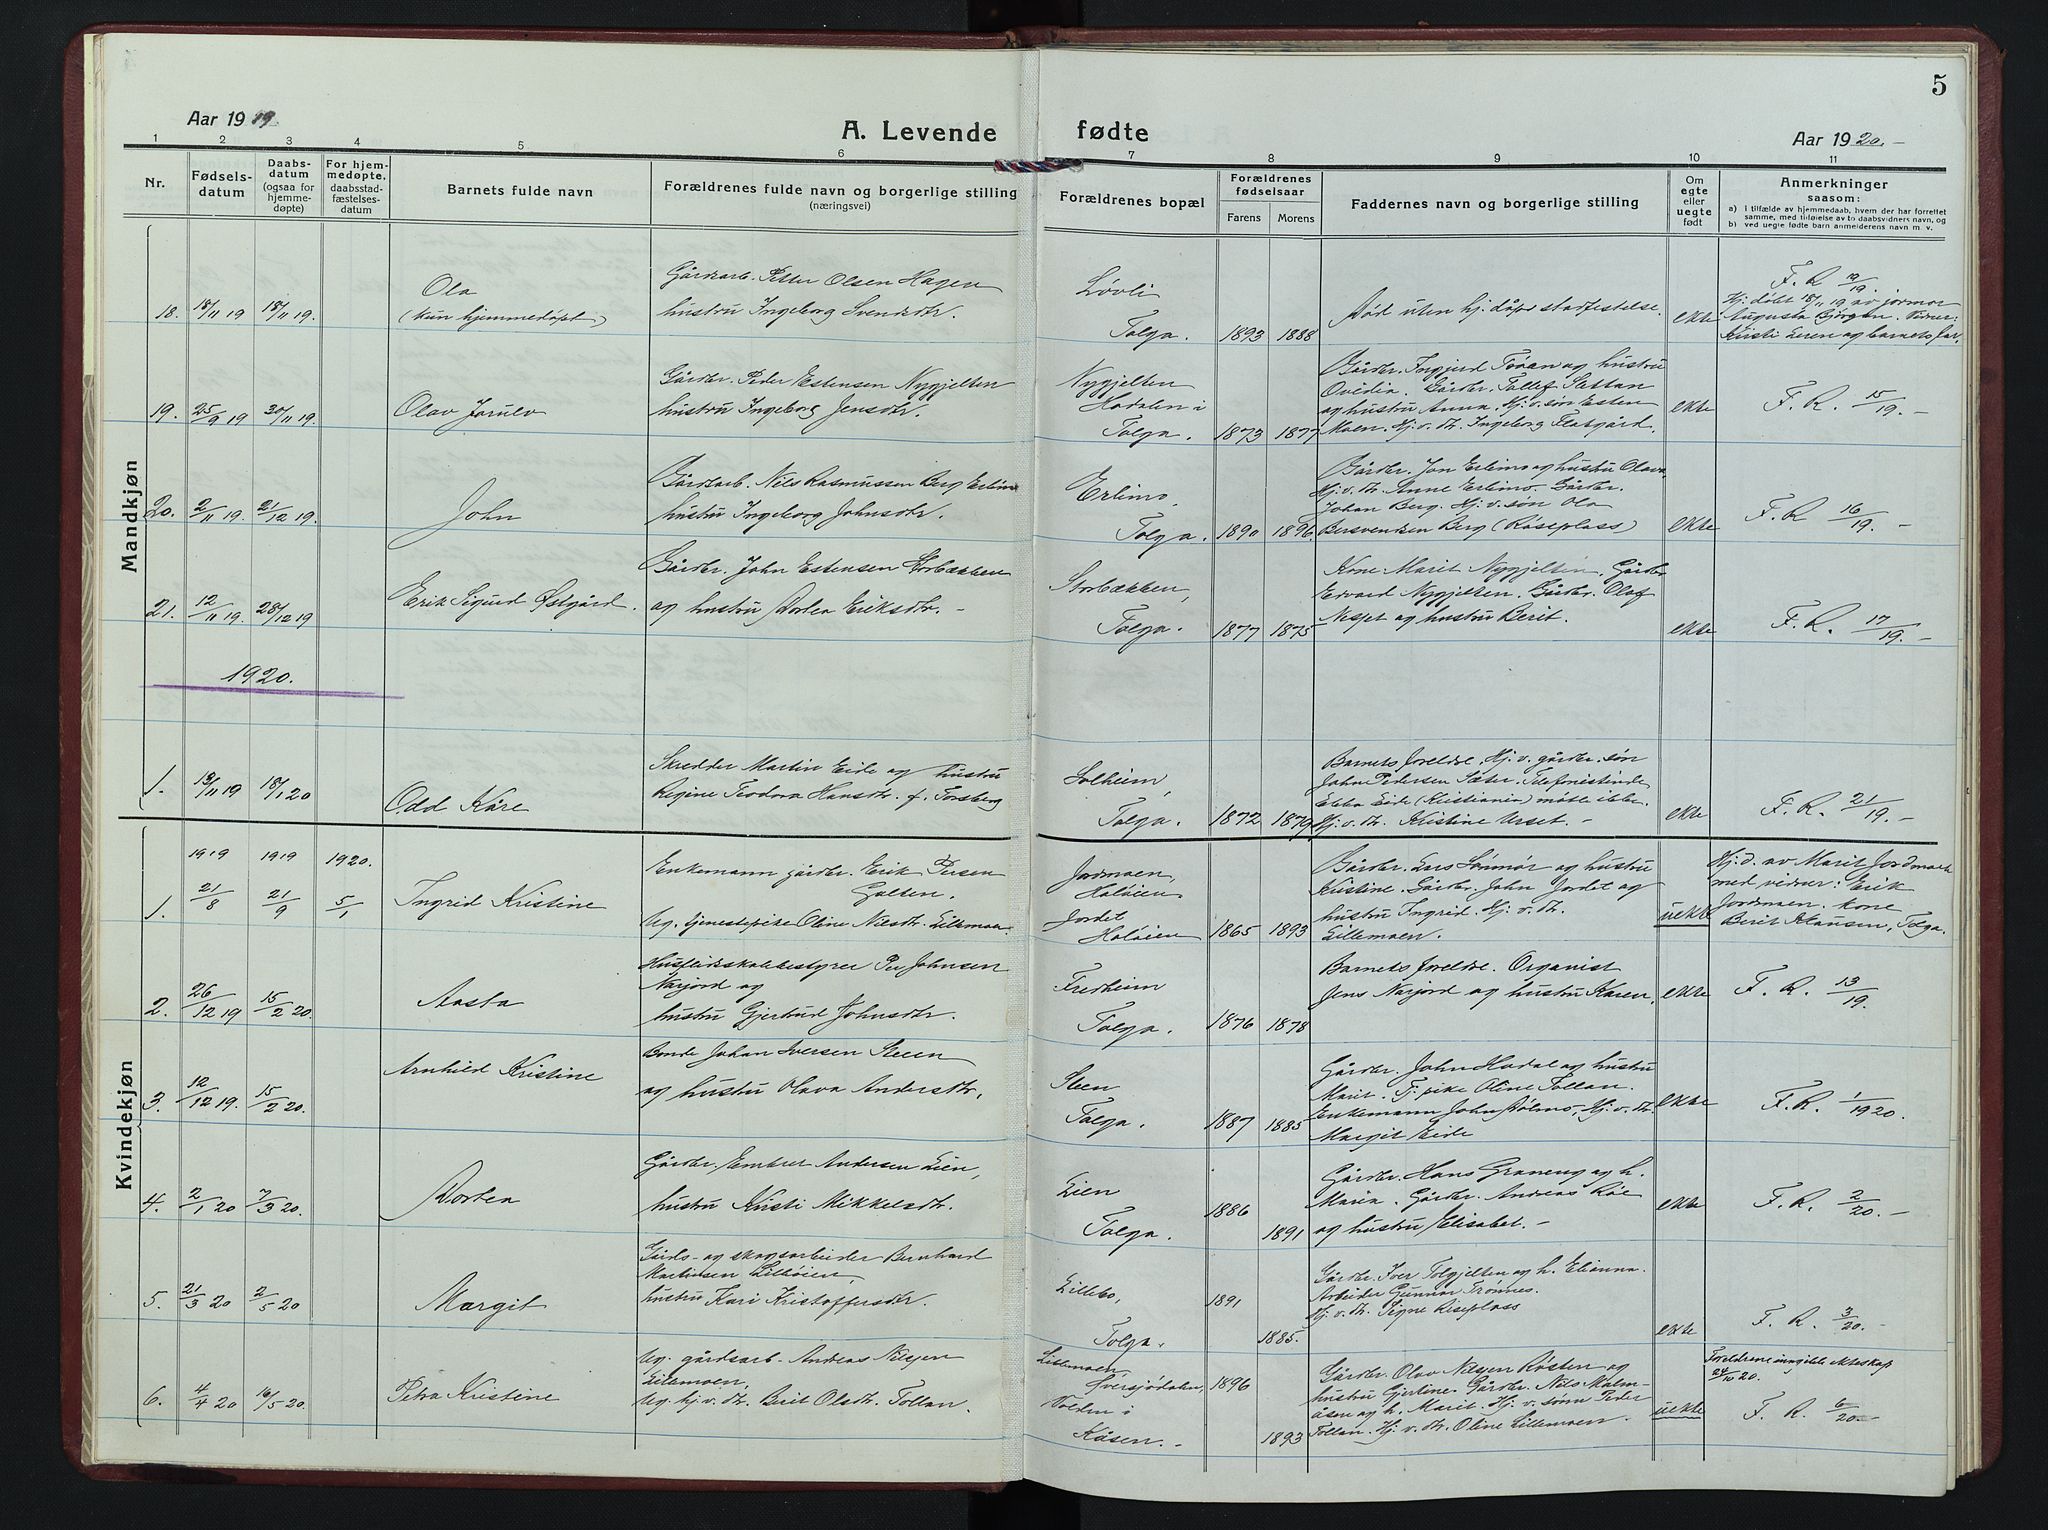 5
Aar 1919
A. Levende fødte
Aar 1920.
1 2 3 4 5 6 7 8 9 10 11
Nr.
Fødsels-
datum
Daabs-
datum
(ogsaa for
hjemme-
døpte)
For hjem-
medøpte.
daabsstad-
fæstelses-
datum
Barnets fulde navn
Forældrenes fulde navn og borgerlige stilling
(næringsvei)
Forældrenes bopæl
Forældrenes
fødselsaar
Farens Morens
Faddernes navn og borgerlige stilling
Om
egte
eller
uegte
født
Anmerkninger
saasom:
a) I tilfælde av hjemmedaab, hvem der har forrettet
samme, med tilføielse av to daabsvidners navn, og
b) ved uegte fødte barn anmelderens navn m. v.
Mandkjøn
18. 18/11 19 18/11 19.
Ola
(kun hjemmedøpt)
Gårdsarb. Petter Olsen Hagen
hustru Ingeborg Svendsdtr.
Løvli
Tolga. 1893 1888
Død uten hj. dåps stadfestelse.
ekte
F. R. 12/19.
Hj. døbt 18/11 19 av jormor
Augusta Bjørgen. Vidner:
Kirsti Eren og barnets far.
19. 25/9 19 30/11 19.
Olav Jorulv
Gårdbr. Peder Estensen Nygjelten
hustru Ingeborg Jensdtr.
Nygjelten
Hodalen i
Tolga. 1873 1877
Gårdbr. Ingjerd Tøran og hustru
Ovidia. Gårdbr. Tollef Sættan
og hustru Anna. Hj. v. søn Esten
Moen. Hj. v. dt. Ingeborg Flatgård.
ekte
F. R. 15/19. -
20. 2/11 19. 21/12 19.
John
Gårdsarb. Nils Rasmussen Berg Erlimo
hustru Ingeborg Johnsdtr.
Erlimo,
Tolga. 1890 1896
Gårdbr. Jon Erlimo og hustru Olava.
Hj. v. dt. Anne Erlimo. Gårdbr.
Johan Berg. Hj. v. søn Ola
Bersvendsen Berg (Røseplass)
ekte
F. R 16/19. -
21. 12/11 19. 28/12 19
Erik Sigurd Østgård.
Gårdbr. John Estensen Storbækken
og hustru Dortea Eriksdtr. -
Storbækken,
Tolga. 1877 1875
Kone Marit Nygjelten. Gårdbr.
Edvard Nygjelten. Gårdbr. Olof
Neset og hustru Berit.
ekte
F. R. 17/19. -
1920.
1. 13/11 19 18/1 20
Odd Kåre
Skredder Martin Eide og hustru
Regine Teodora Hansdtr. f. Forsberg
Solheim,
Tolga. 1872 1879
Barnets foreldre. Hj. v. gårdbr. søn
Johan Pedersen Sæter. Telefonistinde
Ebba Eide (Kristiania) møtte ikke.
Hj. v. dt. Kristine Urset. -
ekte
F. R. 21/19. -
Kvindekjøn
1919 1919 1920.
1. 21/8 21/9 5/1
Ingrid Kristine
Enkemann gårdbr. Erik Persen
Galten.
Ug. tjenestepike Oline Nilsdtr. Lillemoen.
Jordmoen,
Holøien
Jordet
Holøien 1865 1893
Gårdbr. Lars Lønmør og hustru
Kristine. Gårdbr. John Jordet og
hustru Ingrid. Hj. v. dt.
Lillemoen.
uekte
Hj. d. av Marit Jordmoen
med vidner: Erik
Jordmoen. kone
Berit Klausen, Tolga.
2. 26/12 19 15/2 20.
Aasta
Husflidsskolebestyrer Per Johnsen
Narjord og
hustru Gjertrud Johnsdtr.
Fredheim
Tolga. 1876 1878
Barnets foreldre. Organist
Jens Narjord og hustru Karen.
ekte
F. R. 13/19.
3. 12/12 19. 15/2 20.
Arnhild Kristine
Bonde Johan Iversen Steen
og hustru Olava Andersdtr.
Steen
Tolga. 1887 1885
Gårdbr. John Hodal og hustru
Marit. Tj. pike Oline Tollan.
Enkemann John Hølmo, Hj. v. dt.
Margit Eide
ekte
F. R. 1/1920.
4. 2/1 20 7/3 20.
Dortea
Gårdbr. Embret Andersen Lien,
hustru Kirsti Mikkelsdtr.
Lien
Tolga. 1886 1891
Gårdbr. Hans Graneng og h.
Maria. Gårdbr. Andreas Røe
og hustru Elisabet. -
ekte
F. R. 2/20. -
5. 21/3 20 2/5 20
Margit
Gårds- og skogsarbeider Bernhard
Martinsen Lilleøien,
hustru Kari Kristoffersdtr.
Lillebo,
Tolga. 1891 1885.
Gårdbr. Iver Tolgjelten og h. Elianna.
Arbeider Gunnar Trønnes.
Hj. v. dt. Signe Riseplass
ekte
F. R. 3/20. -
6. 4/4 20 16/5 20.
Petra Kristine
Ug. gårdsarb. Andreas Nilsen
Lillemoen,
Ug. hj. v. dt. Berit Olsdtr. Tollan.
Lillemoen,
Øversjødalen, 1896
Volden i
Kåsen. - 1893
Gårdbr. Olav Nilsen Røsten og
hustru Gjertine. Gårdbr. Nils Malm-
åsen og h. Marit. Hj. v. sønn Peder
Tollan. Hj. v. dt. Oline Lillemoen.
uekte
Foreldrene inngikk ekteskap
24/10 20.
F. R. 6/20 -